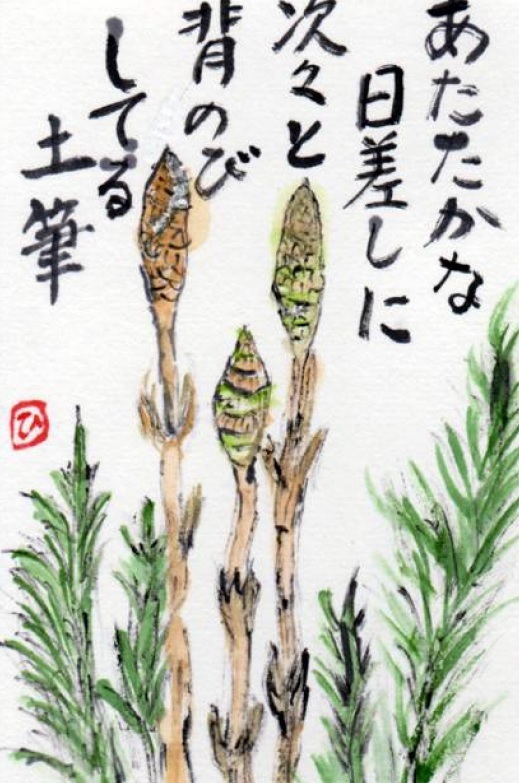 あたたかな
日差しに
次々と
背のび
してる
土筆
ひ